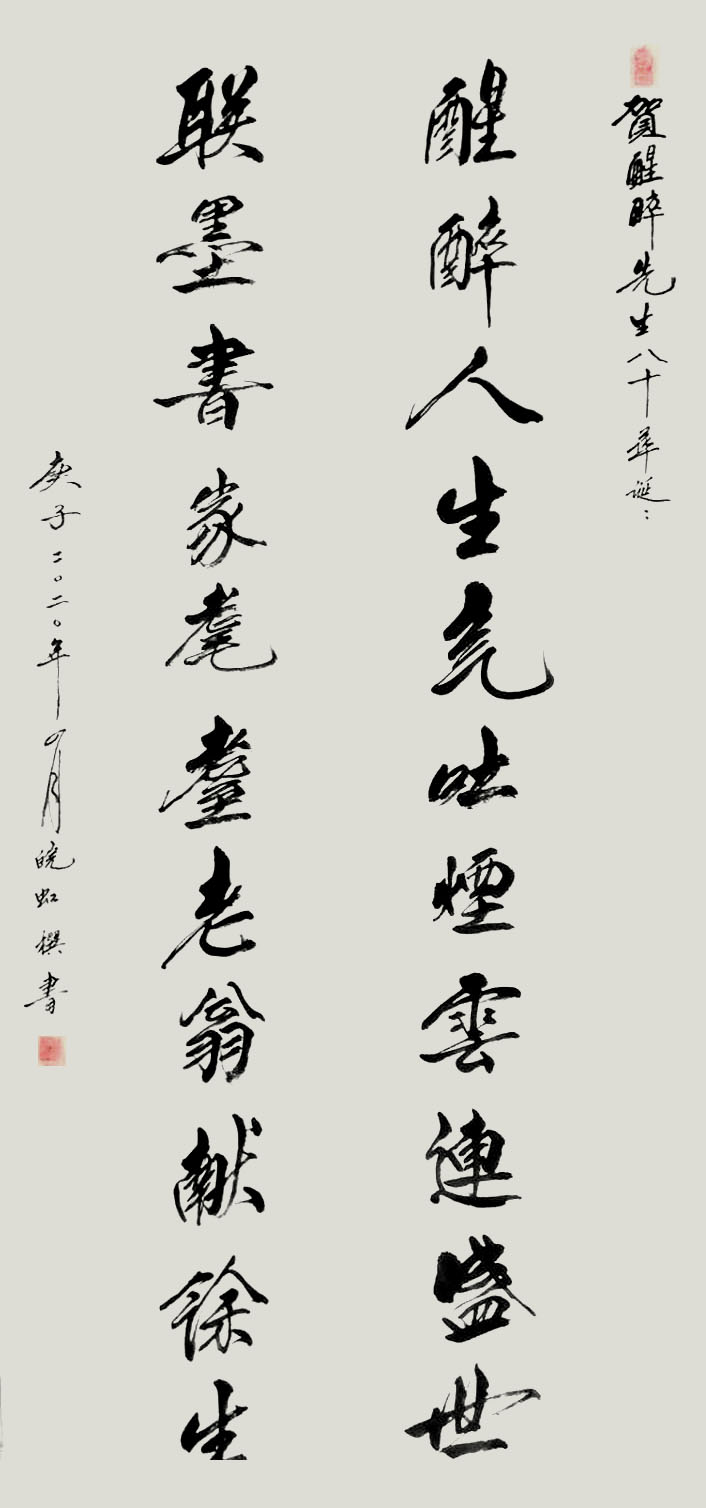 賀醒醉先生八十華誕：
醒醉人生气吐煙雲連盛世
联墨書家耄耋老翁献馀生
庚子二〇二〇年四月皖虹撰書